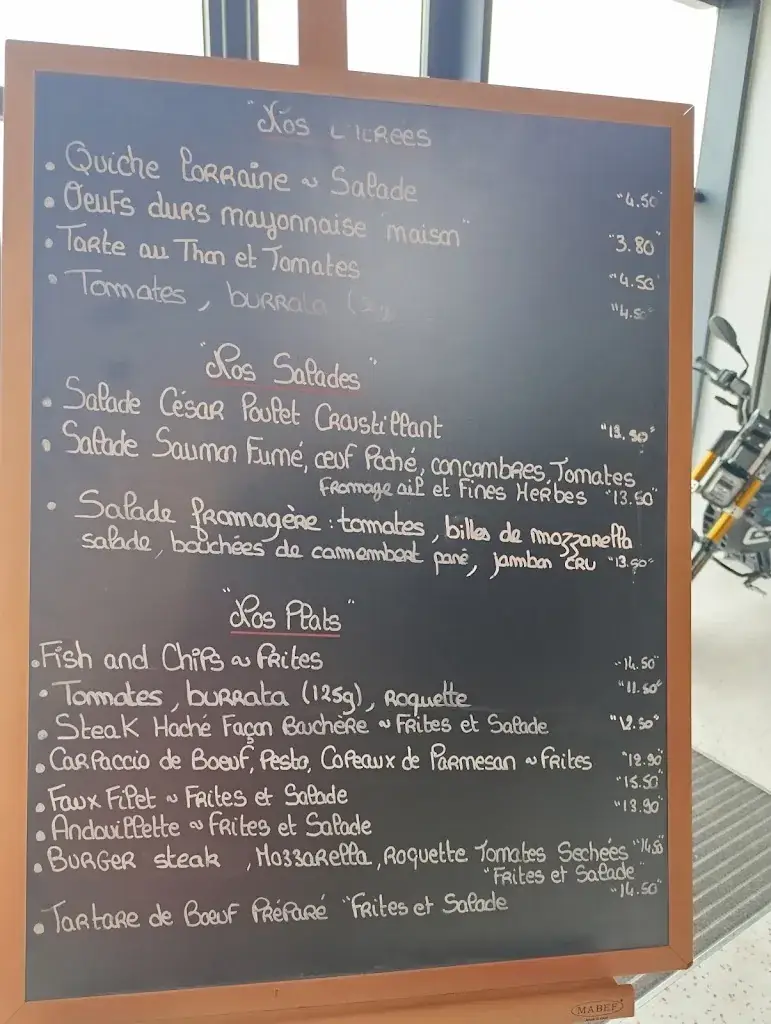 "Nos
Quiche Lorraine ~ Salade "4.50"
Oeufs durs mayonnaise "maison" "3.80"
Tarte au Thon et Tomates "4.50"
Tomates, burrata "4.50"
"Nos Salades"
Salade César Poulet Croustillant "13.90"
Salade Saumon Fumé, œuf Poché, concombres, Tomates
Fromage ail et Fines Herbes "13.50"
Salade fromagère : tomates, billes de mozzarella
salade, bouchées de camembert pané, jambon CRU "13.90"
"Nos Plats"
Fish and Chips ~ Frites "14.50"
Tomates, burrata (125g), Roquette "11.50"
Steak Haché Façon Bouchère ~ Frites et Salade "12.50"
Carpaccio de Boeuf, Pesto, Copeaux de Parmesan ~ Frites "12.90"
"15.50"
Faux Filet ~ Frites et Salade "13.90"
Andouillette ~ Frites et Salade
Burger steak, Mozzarella, Roquette Tomates Sechées
"Frites et Salade"
"14.50"
Tartare de Boeuf Préparé "Frites et Salade
MABEF